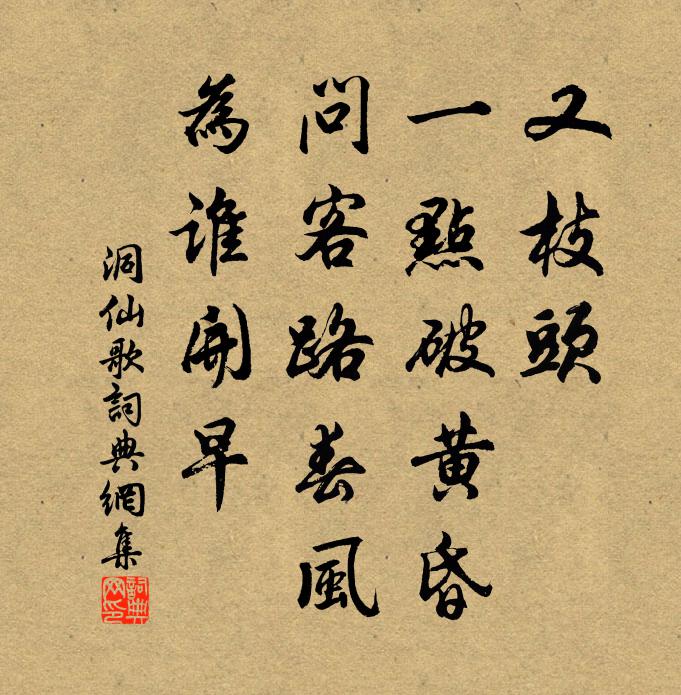 又枝頭
一點破黃昏
問客路春風
為誰開早
洞仙歌詞典網集
詞典网印